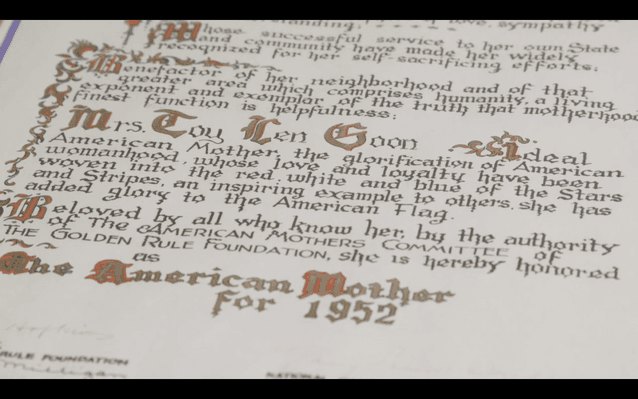 standing, love, sympathy
Whose successful service to her own State
and community have made her widely
recognized for her self-sacrificing efforts;
Benefactor of her neighborhood and of that
greater area which comprises humanity, a living
exponent and exemplar of the truth that motherhood
finest function is helpfulness;
Mrs. Toy Len Goon Ideal
American Mother, the glorification of American
womanhood, whose love and loyalty have been
woven into the red, white and blue of the Stars
and Stripes, an inspiring example to others, she has
added glory to the American Flag.
Beloved by all who know her, by the authority
of THE AMERICAN MOTHERS COMMITTEE of
THE GOLDEN RULE FOUNDATION, she is hereby honored
as
The American Mother
for 1952
RULE FOUNDATION